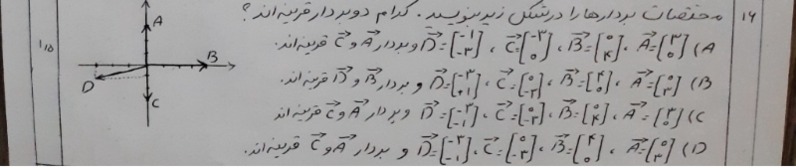 ۱۶ مختصات بردارها را در شکل زیر بنویسید. کدام دو بردار قرینه اند؟
A) A⃗=[۳ ۰] ، B⃗=[۰ ۴] ، C⃗=[-۳ ۰] ، D⃗=[-۱ -۳] و بردار A⃗ و C⃗ قرینه اند.
B) A⃗=[۰ ۳] ، B⃗=[۴ ۰] ، C⃗=[۰ -۳] ، D⃗=[-۳ +۱] و بردار B⃗ و D⃗ قرینه اند.
C) A⃗=[۳ ۰] ، B⃗=[۰ ۴] ، C⃗=[۰ -۳] ، D⃗=[-۳ -۱] و بردار A⃗ و C⃗ قرینه اند
D) A⃗=[۰ ۳] ، B⃗=[۴ ۰] ، C⃗=[۰ -۳] ، D⃗=[-۳ -۱] و بردار A⃗ و C⃗ قرینه اند.
A
B
D
C
۱/۵